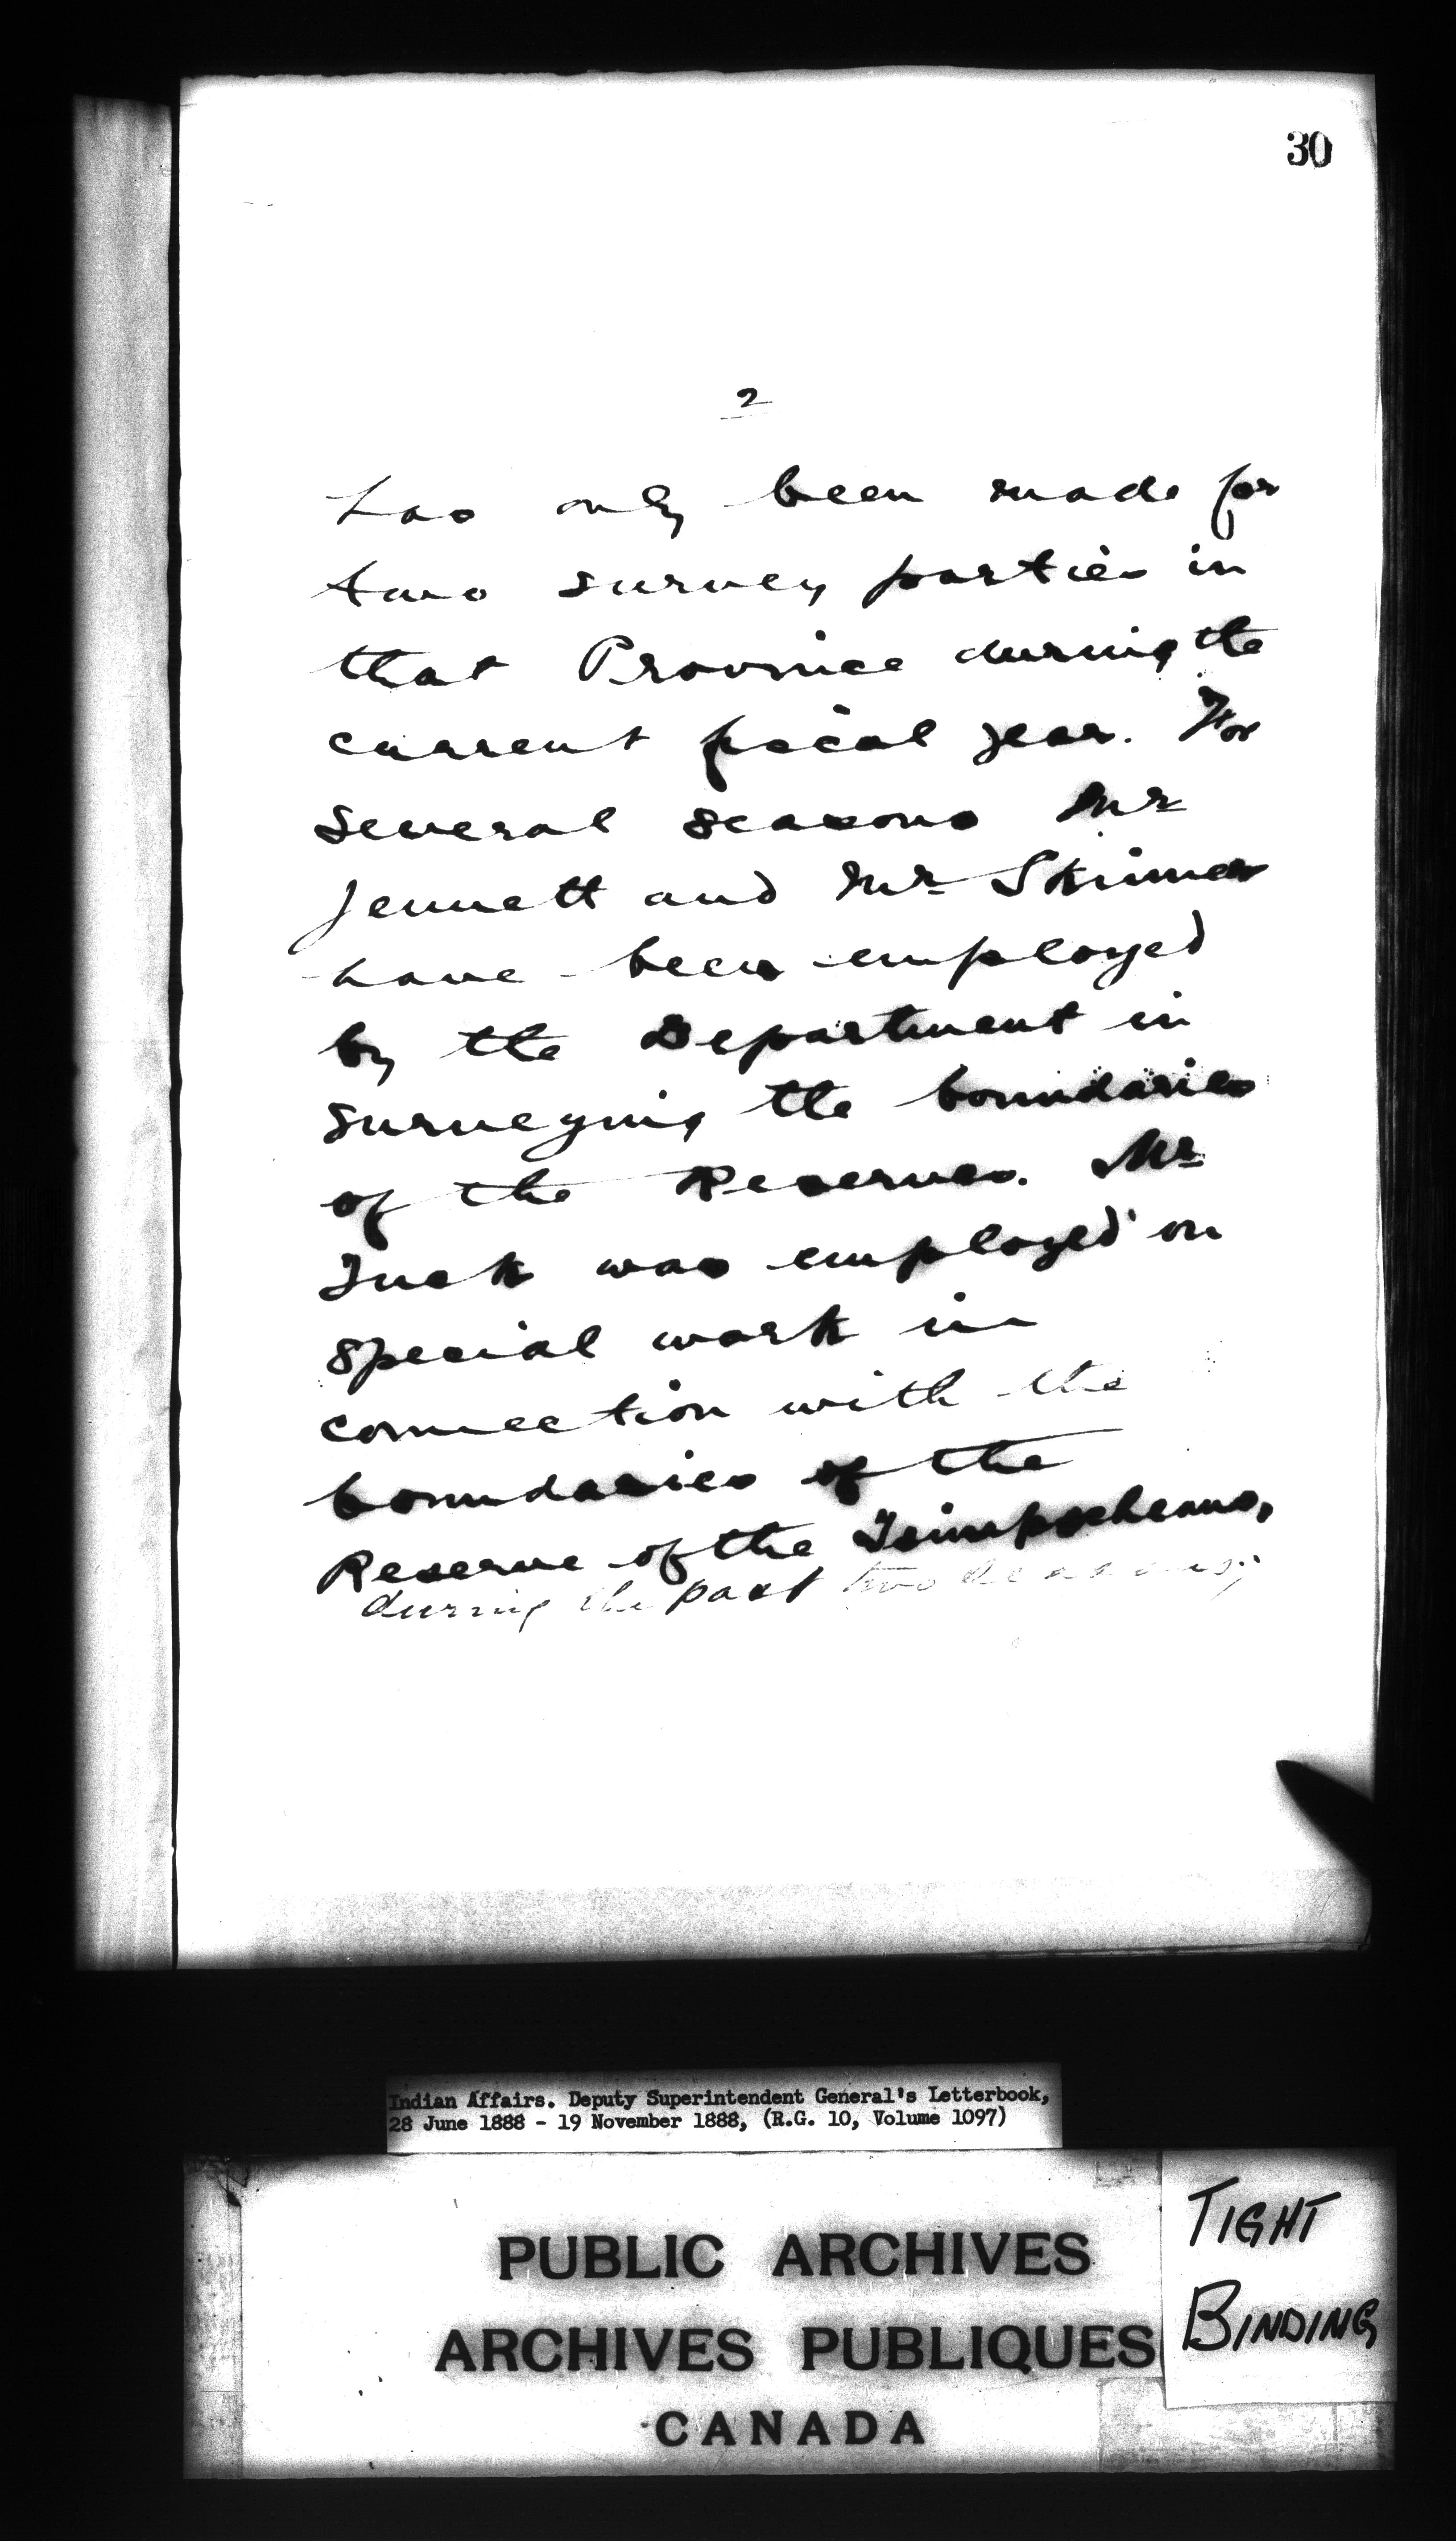 30
2
has only been made for
two survey parties in
that Province during the
current fiscal year. For
several seasons Mr
Jennett and Mr Skinner
have been employed
by the Department in
surveying the boundaries
of the Reserves. Mr
Tuck was employed on
special work in
connection with the
boundaries of the
Reserve of the Tsimpsheans,
during the past two seasons;
Indian Affairs. Deputy Superintendent General's Letterbook,
28 June 1888 - 19 November 1888, (R.G. 10, Volume 1097)
PUBLIC ARCHIVES
ARCHIVES PUBLIQUES
CANADA
TIGHT
BINDING